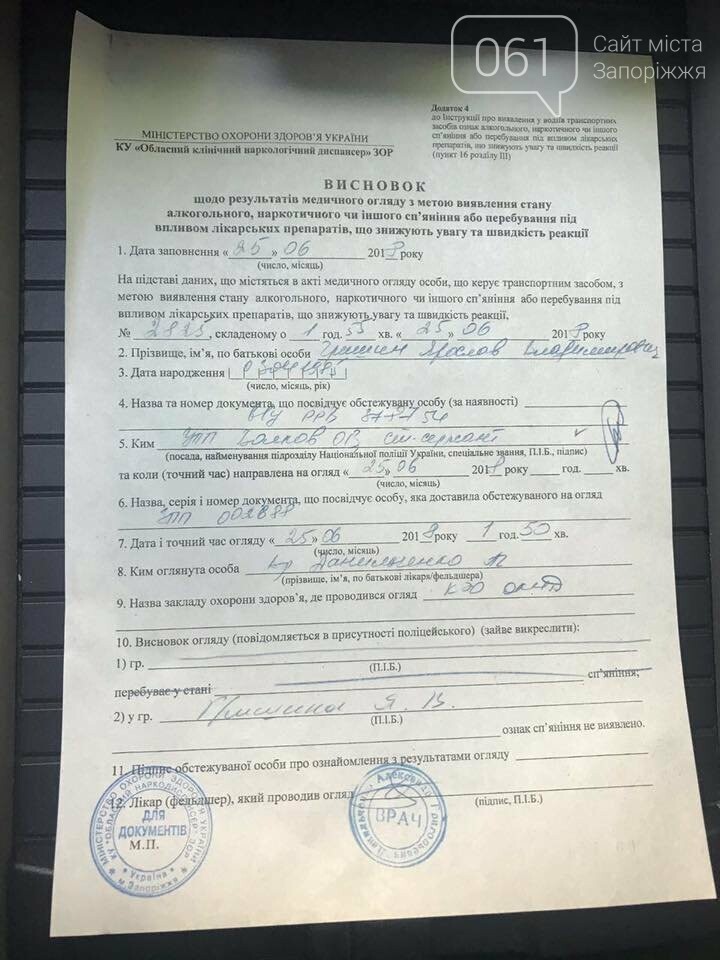 061
Сайт міста
Запоріжжя
Додаток 4
до Інструкції про виявлення у водіїв транспортних
засобів ознак алкогольного, наркотичного чи іншого
сп'яніння або перебування під впливом лікарських
препаратів, що знижують увагу та швидкість реакції
(пункт 16 розділу III)
МІНІСТЕРСТВО ОХОРОНИ ЗДОРОВ'Я УКРАЇНИ
КУ «Обласний клінічний наркологічний диспансер» ЗОР
ВИСНОВОК
щодо результатів медичного огляду з метою виявлення стану
алкогольного, наркотичного чи іншого сп'яніння або перебування під
впливом лікарських препаратів, що знижують увагу та швидкість реакції
1. Дата заповнення «25» 06 2018 року
(число, місяць)
На підставі даних, що містяться в акті медичного огляду особи, що керує транспортним засобом, з
метою виявлення стану алкогольного, наркотичного чи іншого сп'яніння або перебування під
впливом лікарських препаратів, що знижують увагу та швидкість реакції,
№ 2825, складеному о 1 год. 55 хв. «25» 06 2018 року
2. Прізвище, ім'я, по батькові особи Гришин Ярослав Владимирович
3. Дата народження
(число, місяць, рік)
4. Назва та номер документа, що посвідчує обстежувану особу (за наявності)
5. Ким УПП ст. сержант
(посада, найменування підрозділу Національної поліції України, спеціальне звання, П.І.Б., підпис)
та коли (точний час) направлена на огляд «25» 06 2018 року год. хв.
(число, місяць)
6. Назва, серія і номер документа, що посвідчує особу, яка доставила обстежуваного на огляд
УПП
7. Дата і точний час огляду «25» 06 2018 року 1 год. 50 хв.
(число, місяць)
8. Ким оглянута особа
(прізвище, ім'я, по батькові лікаря/фельдшера)
9. Назва закладу охорони здоров'я, де проводився огляд
10. Висновок огляду (повідомляється в присутності поліцейського) (зайве викреслити):
1) гр.
(П.І.Б.)
перебуває у стані сп'яніння;
2) у гр. Гришина Я. В.
(П.І.Б.)
ознак сп'яніння не виявлено.
11. Підпис обстежуваної особи про ознайомлення з результатами огляду
12. Лікар (фельдшер), який проводив огляд
(підпис, П.І.Б.)
ДЛЯ
ДОКУМЕНТІВ
М.П.
Україна
м. Запоріжжя
ВРАЧ